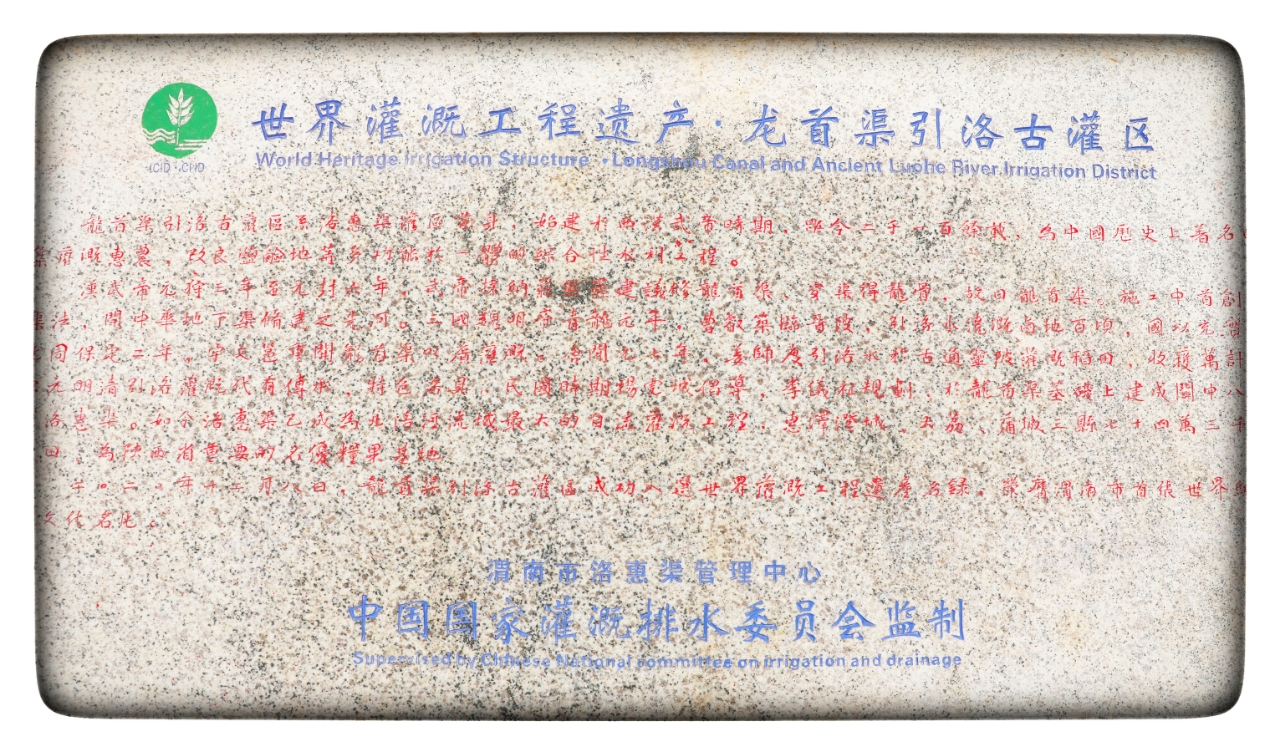 世界灌溉工程遗产·龙首渠引洛古灌区
World Heritage Irrigation Structure ·Longshou Canal and Ancient Luohe River Irrigation District
ICID·CIID
龍首渠引洛古灌區系洛惠渠灌區前身，始建於西漢武帝時期，距今二千一百餘載，為中國歷史上著名
灌溉惠農，改良鹽鹼地等多功能於一體的綜合性水利工程。
漢武帝元狩三年至元封六年，武帝採納莊熊羆建議修龍首渠，穿渠得龍骨，故曰龍首渠。施工中首創
法，開中華地下渠修建之先河。三國魏明帝青龍元年，築臨晉陂，引洛水溉舄鹵地百頃，國以充
周保定二年，宇文邕重開龍首渠以廣灌溉。唐開元七年，姜師度引洛水稽古通靈陂灌溉稻田，收穫萬計
元明清引洛灌溉代有傳承，特色各具。民國時期楊虎城倡導，李儀祉規劃，於龍首渠基礎上建成關中八
洛惠渠。如今洛惠渠已成為北洛河流域最大的自流灌溉工程，惠澤澄城、大荔、蒲城三縣七十四萬三千
田，為陝西省重要的名優糧果基地
二〇二〇年十二月八日，龍首渠引洛古灌區成功入選世界灌溉工程遺產名錄，榮膺渭南市首張世界
文化名片。
渭南市洛惠渠管理中心
中国国家灌溉排水委员会监制
Supervised by Chinese National committee on irrigation and drainage